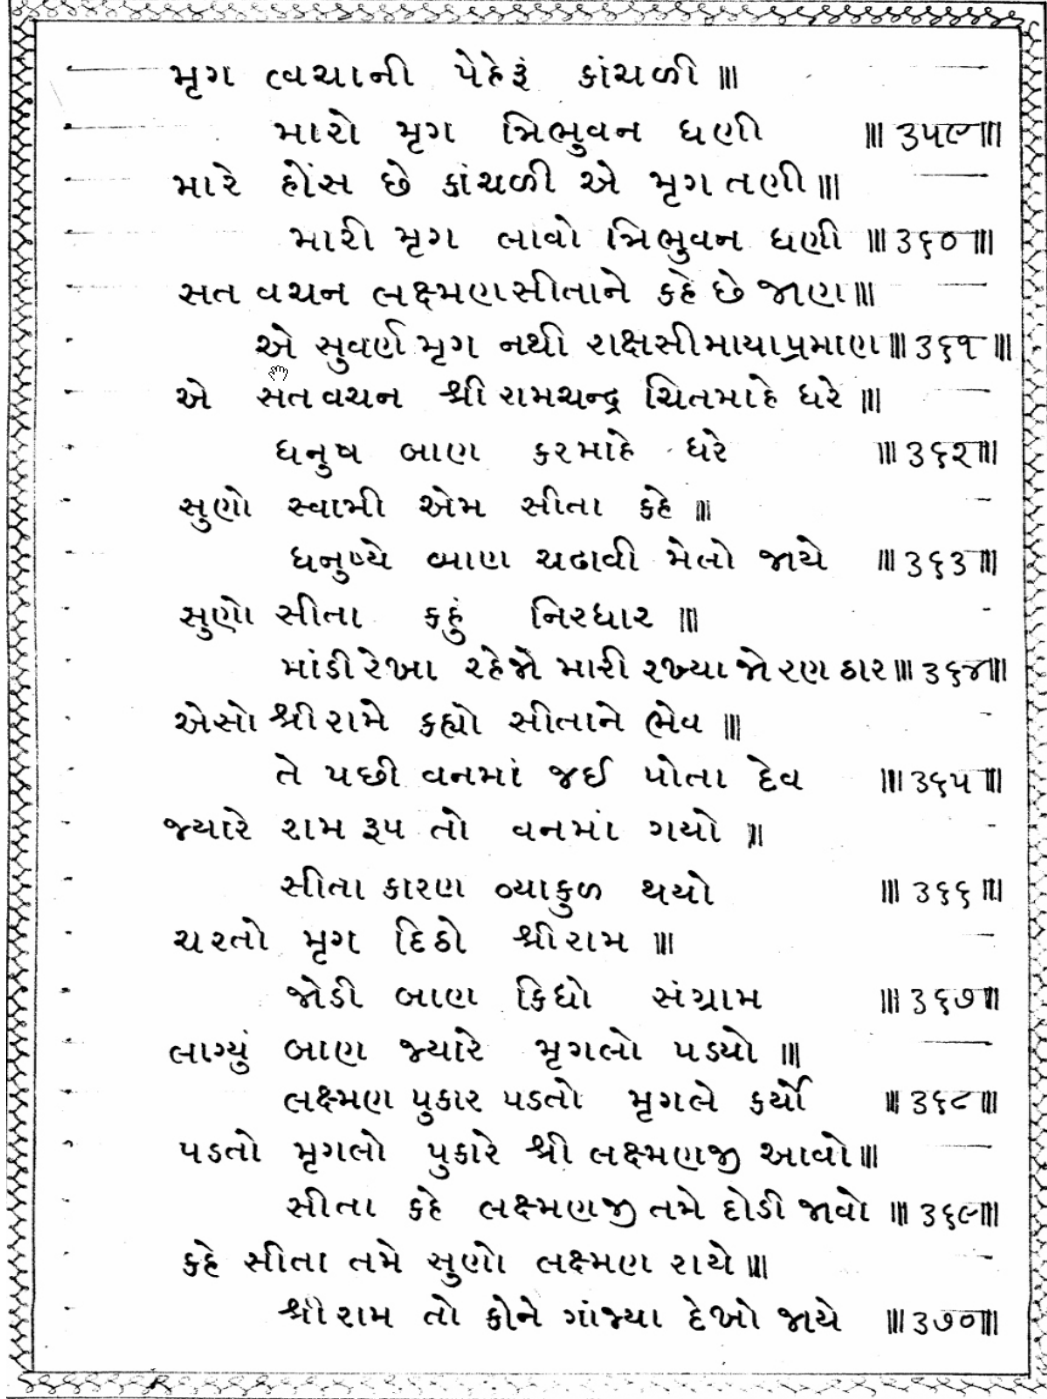 મૃગ ત્વચાની પેહેરૂં કાંચળી ॥
મારો મૃગ ત્રિભુવન ધણી ॥૩૫૯॥
મારે હોંસ છે કાંચળી એ મૃગ તણી ॥
મારી મૃગ લાવો ત્રિભુવન ધણી ॥૩૬૦॥
સત વચન લક્ષ્મણ સીતાને કહે છે જાણ ॥
એ સુવર્ણ મૃગ નથી રાક્ષસી માયા પ્રમાણ ॥૩૬૧॥
એ સત વચન શ્રી રામચન્દ્ર ચિતમાહે ધરે ॥
ધનુષ બાણ કરમાહે ધરે ॥૩૬૨॥
સુણો સ્વામી એમ સીતા કહે ॥
ધનુષ્યે બાણ ચઢાવી મેલો જાયે ॥૩૬૩॥
સુણો સીતા કહું નિરધાર ॥
માંડી રેખા રહેજો મારી રખ્યા જો રણ ઠાર ॥૩૬૪॥
એસો શ્રી રામે કહ્યો સીતાને ભેવ ॥
તે પછી વનમાં જઈ પોતા દેવ ॥૩૬૫॥
જ્યારે રામ રૂપ તો વનમાં ગયો ॥
સીતા કારણ વ્યાકુળ થયો ॥૩૬૬॥
ચરતો મૃગ દિઠો શ્રી રામ ॥
જોડી બાણ કિધો સંગ્રામ ॥૩૬૭॥
લાગ્યું બાણ જ્યારે મૃગલો પડયો ॥
લક્ષ્મણ પુકાર પડતો મૃગલે કર્યો ॥૩૬૮॥
પડતો મૃગલો પુકારે શ્રી લક્ષ્મણજી આવો ॥
સીતા કહે લક્ષ્મણજી તમે દોડી જાવો ॥૩૬૯॥
કહે સીતા તમે સુણો લક્ષ્મણ રાયે ॥
શ્રી રામ તો કોને ગાંજ્યા દેખો જાયે ॥૩૭૦॥